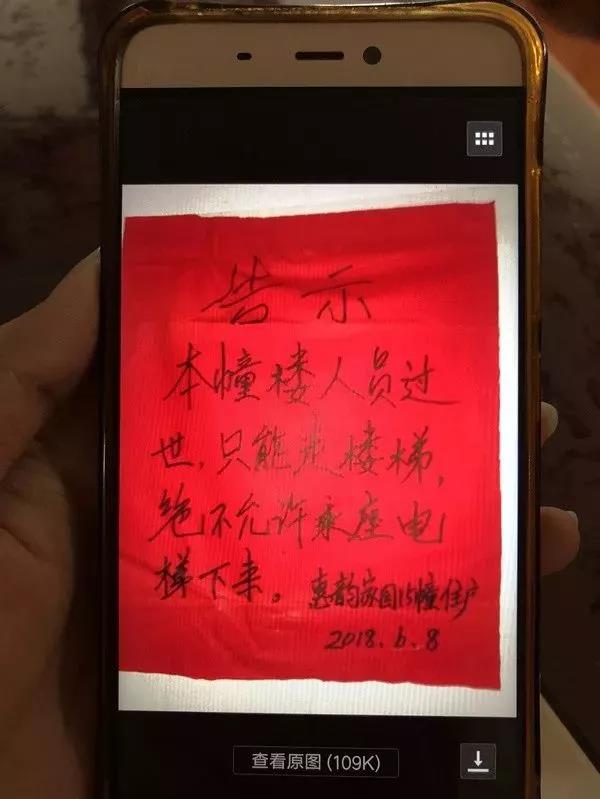 告示
本幢楼人员过
世,只能走楼梯,
绝不允许乘座电
梯下来。惠韵家园15幢住户
2018.6.8
查看原图(109K)